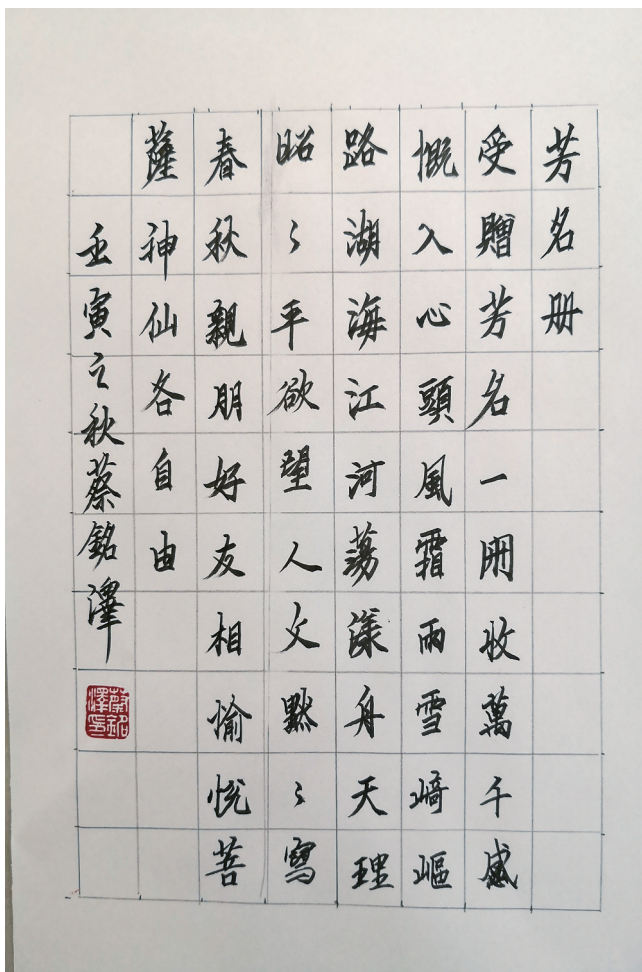 芳名册
受贈芳名一册收萬千感
慨入心頭風霜雨雪崎嶇
路湖海江河蕩漾舟天理
昭々平欲望人文默々寫
春秋親朋好友相愉悦菩
薩神仙各自由
壬寅之秋蔡銘澤
蔡銘澤印